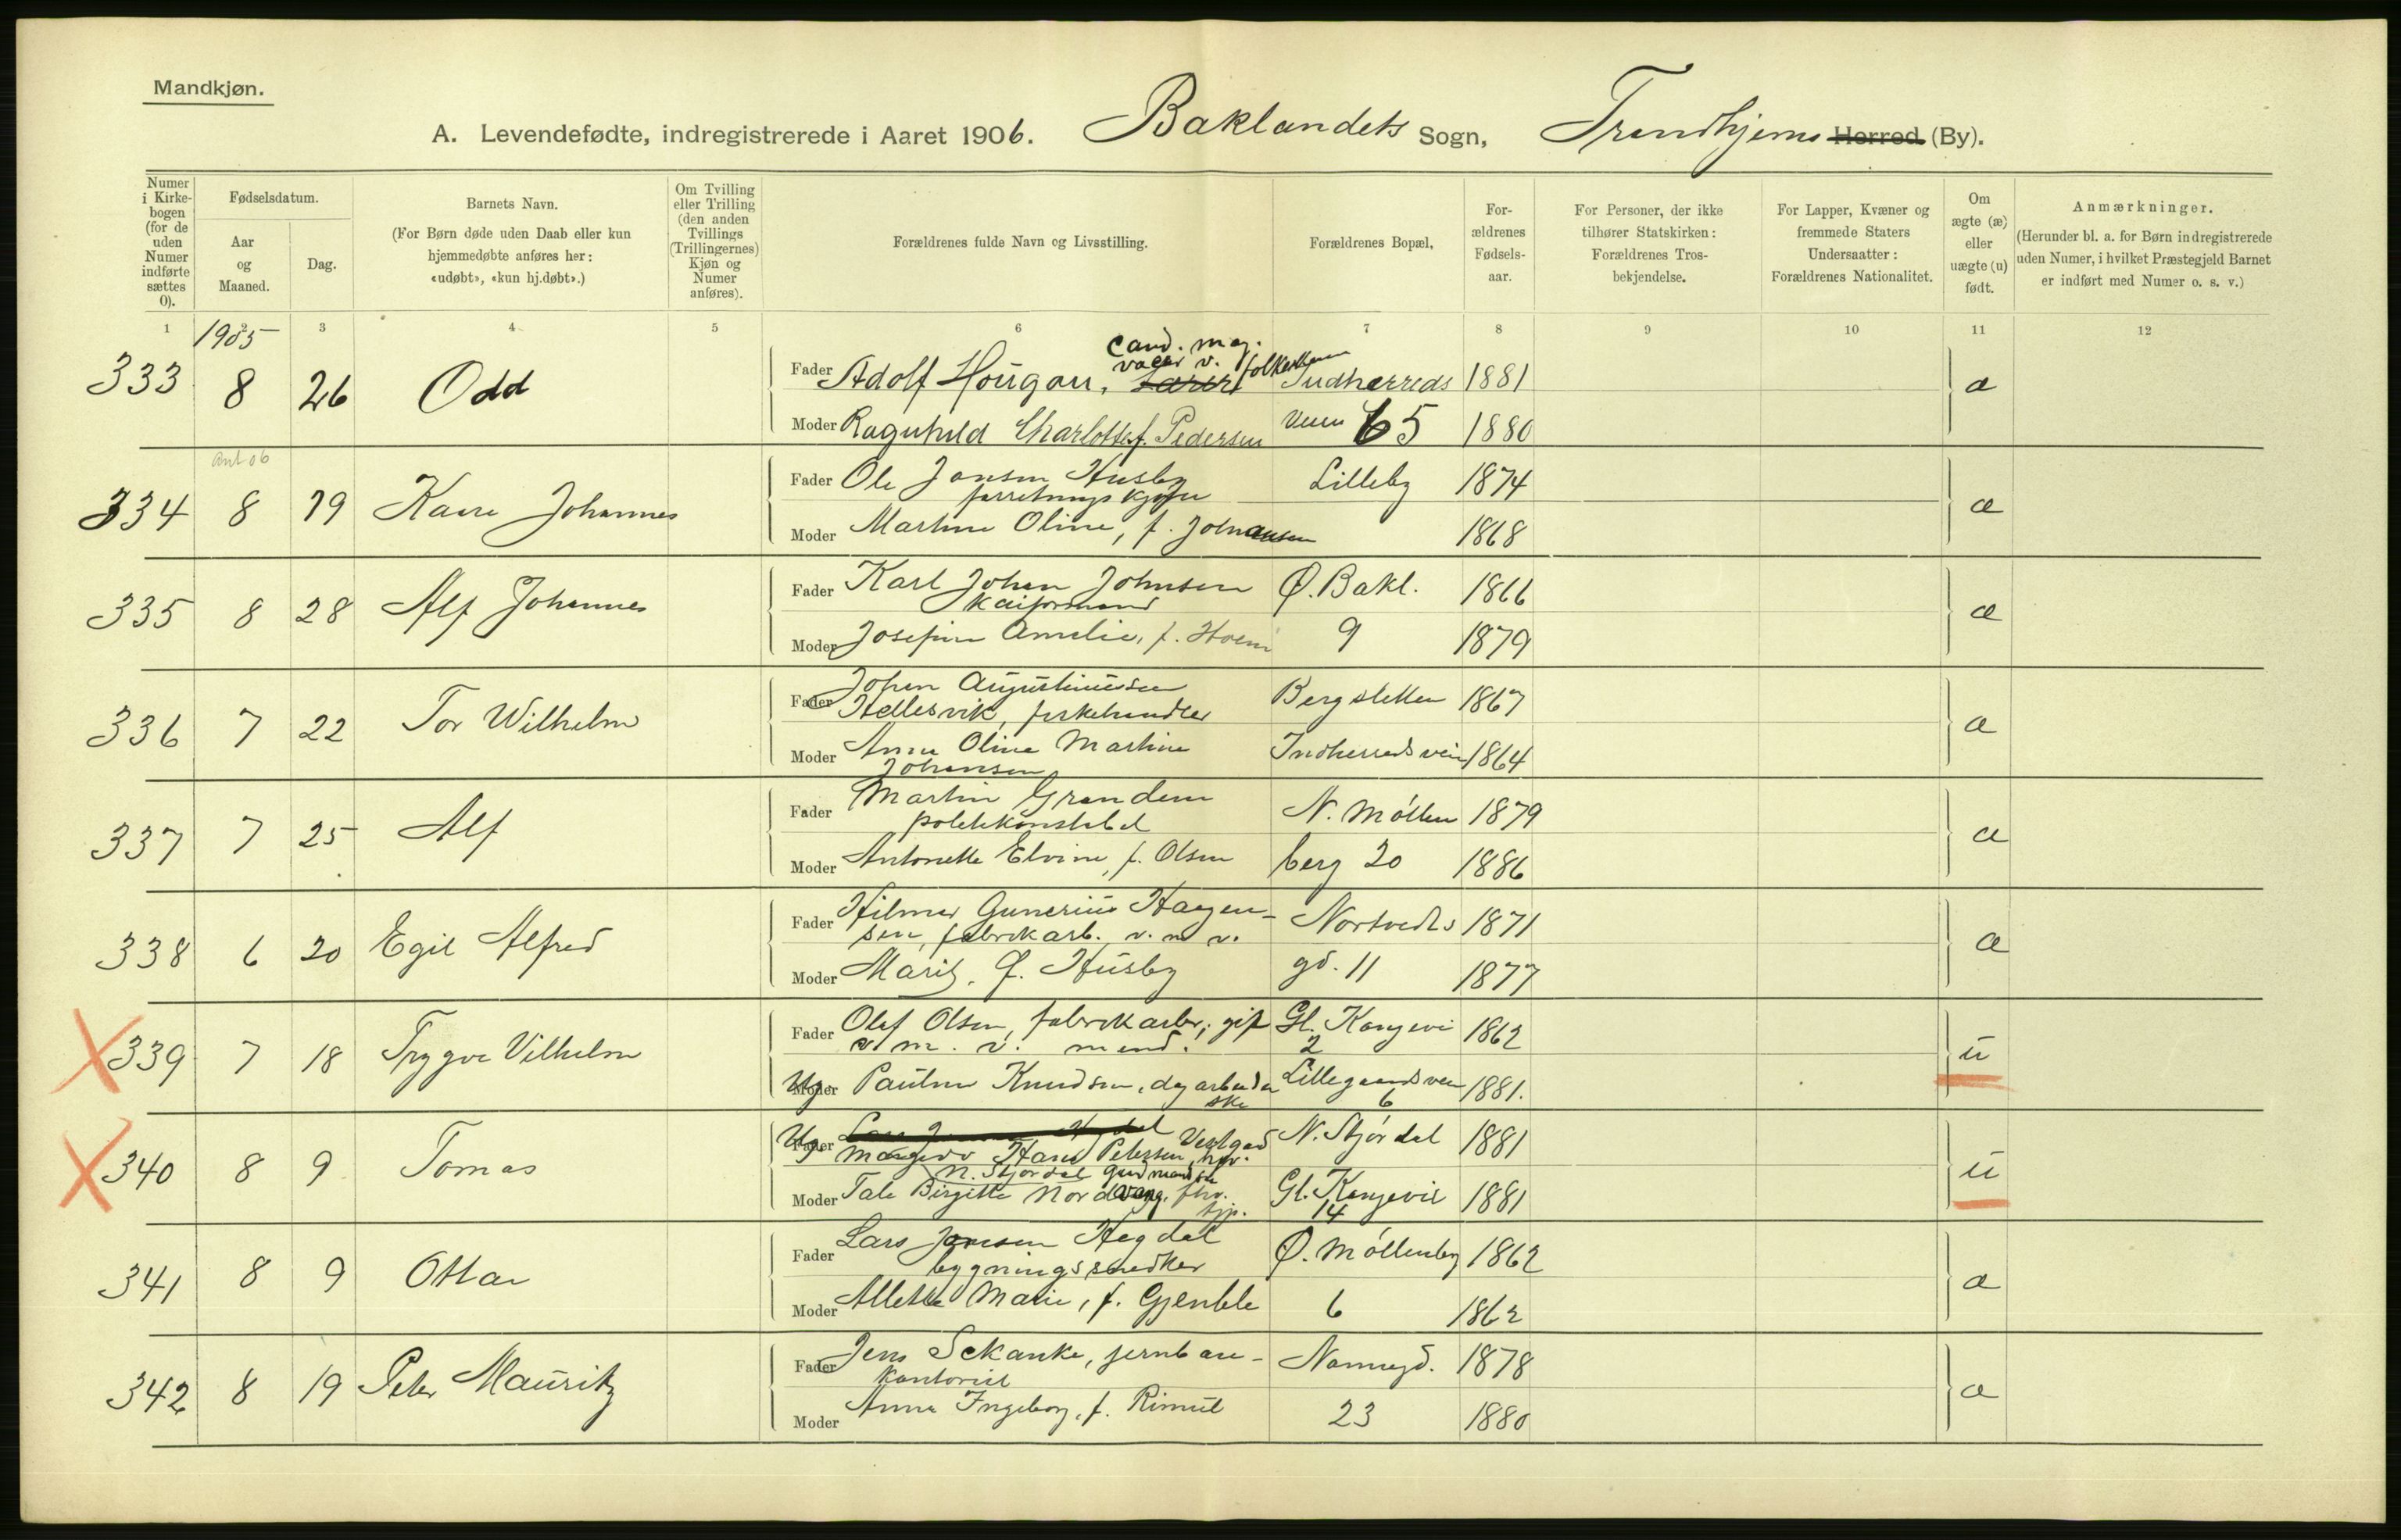 Mandkjøn.
A. Levendefødte, indregistrerede i Aaret 1906. Baklandets Sogn, Trondhjems Herred (By).
Numer i Kirkebogen (for de uden Numer indførte sættes 0).
Fødselsdatum.
Aar og Maaned.
Dag.
Barnets Navn.
(For Børn døde uden Daab eller kun hjemmedøbte anføres her: «udøbt», «kun hj.døbt».)
Om Tvilling eller Trilling (den anden Tvillings (Trillingernes) Kjøn og Numer anføres).
Forældrenes fulde Navn og Livsstilling.
Forældrenes Bopæl,
Forældrenes Fødselsaar.
For Personer, der ikke tilhører Statskirken: Forældrenes Trosbekjendelse.
For Lapper, Kvæner og fremmede Staters Undersaatter: Forældrenes Nationalitet.
Om ægte (æ) eller uægte (u) født.
Anmærkninger.
(Herunder bl. a. for Børn indregistrerede uden Numer, i hvilket Præstegjeld Barnet er indført med Numer o. s. v.)
1 2 3 4 5 6 7 8 9 10 11 12
1905
cand. mag.
333 8 26 Odd Fader Adolf Hougan, Indherreds 1881 æ
Moder Ragnhild Charlotte f. Pedersen veien 65 1880
Ant 06
334 8 19 Kaare Johannes Fader Ole Jonsen Husby Lilleby 1874 æ
Moder Martine Oline, f. Johansen 1868
335 8 28 Alf Johannes Fader Karl Johan Johnsen Ø. Bakl. 1866 æ
Kaiformand
Moder Josefine Amelie, f. Hoem 9 1879
336 7 22 Tor Wilhelm Fader Johan Augustinussen Bergsletten 1867 æ
Hellesvik, fiskehandler
Moder Anna Oline Martine Indherredsvein 1864
Johansen
337 7 25 Alf Fader Martin Granden N. Møllen 1879 æ
politikonstabel
Moder Antonette Elvine, f. Olsen berg 20 1886
338 6 20 Egil Alfred Fader Hilmar Gunerius Haagen- Nortvedts 1871 æ
sen, fabrikarb. v. m v.
Moder Marit, f. Husby gd. 11 1877
339 7 18 Trygve Vilhelm Fader Olaf Olsen, fabrikarb, gift Gl. Kongevei 1862 u
m. v. mand. 2
Ug Moder Pauline Knudsen, dagarbeider Lillegaardsvei 1881.
ske 6
340 8 9 Tomas Ug Fader N. Stjørdal 1881 u
Hans Petersen
N. Stjørdal gaardmandss
Moder Tale Birgitte Nordvang, Gl. Kongevei 1881
tjp. 14
341 8 9 Ottar Fader Lars Jonsen Hegdal Ø. Møllenbg 1862 æ
bygningssnedker
Moder Allette Marie, f. Gjenble 6 1862
342 8 19 Peter Mauritz Fader Jens Sckanke, jernbane- Nannagd. 1878 æ
kontorist
Moder Anna Ingeborg, f. Rimul 23 1880